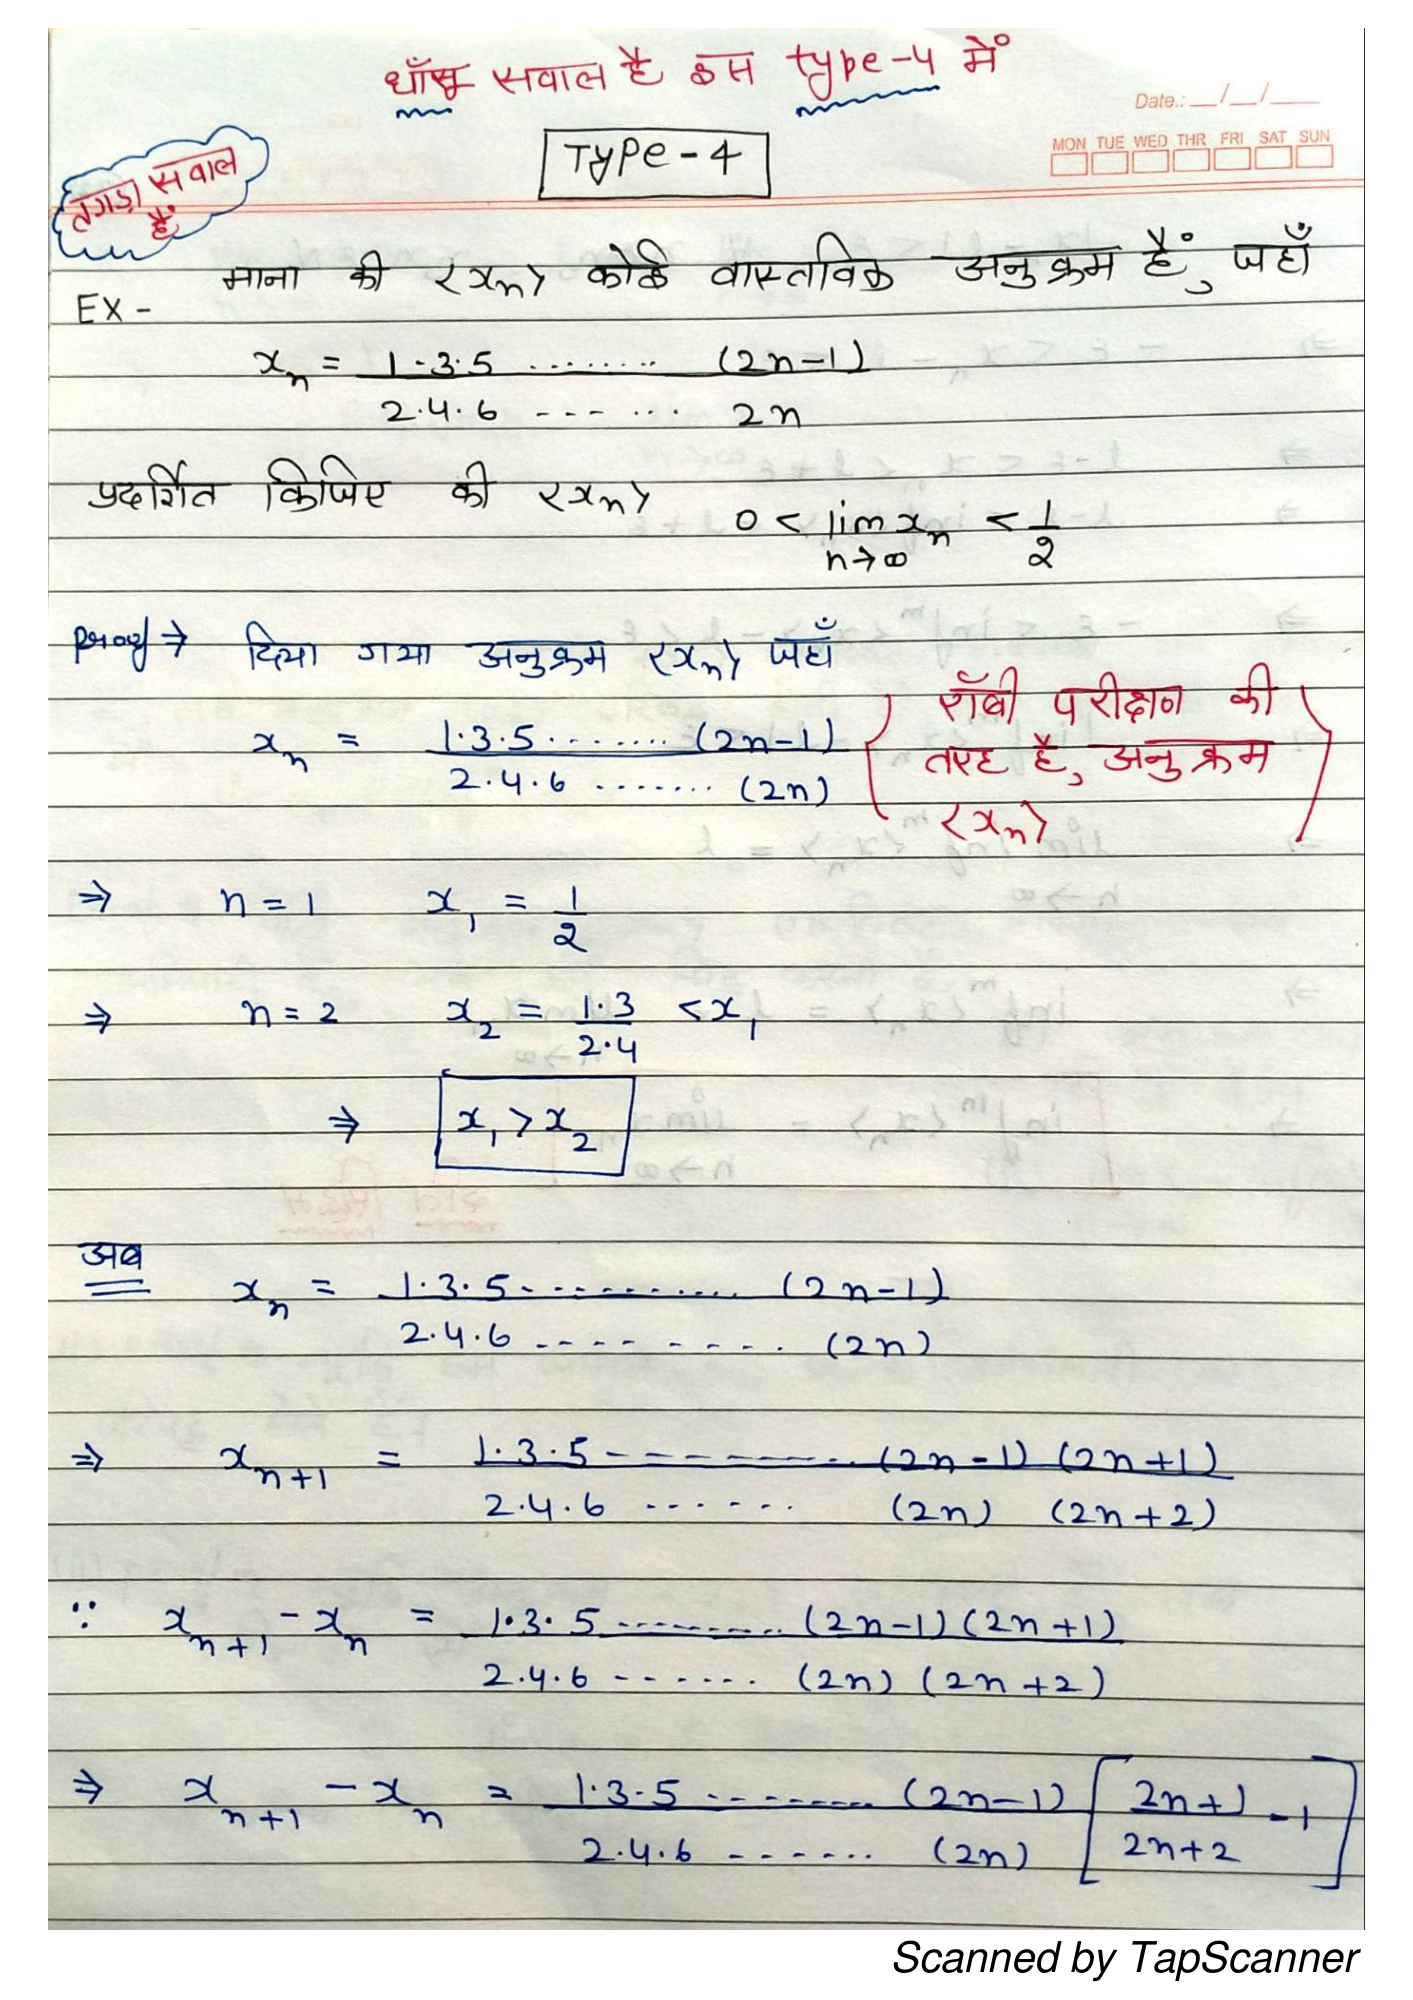 धाँसू सवाल है इस type-4 में
Date.: __/__/___
MON TUE WED THR FRI SAT SUN
TYPE-4
तगड़ा सवाल
है
माना की <xₙ> कोई वास्तविक अनुक्रम है, जहाँ
EX-
xₙ = 1·3·5 ........ (2n-1)
2·4·6 --- ... 2n
प्रदर्शित किजिए की <xₙ> 0 < lim xₙ < 1/2
n→∞
Proof → दिया गया अनुक्रम <xₙ> जहाँ
xₙ = 1·3·5........(2n-1)
2·4·6 ....... (2n)
रॉबी परीक्षण की
तरह है, अनुक्रम
<xₙ>
⇒ n = 1 x₁ = 1/2
⇒ n = 2 x₂ = 1·3/2·4 < x₁
⇒ x₁ > x₂
अब
xₙ = 1·3·5........... (2n-1)
2·4·6 --------- (2n)
⇒ xₙ₊₁ = 1·3·5----------(2n-1) (2n+1)
2·4·6 ...... (2n) (2n+2)
∵ xₙ₊₁ - xₙ = 1·3·5 ......... (2n-1)(2n+1)
2·4·6 ------. (2n) (2n+2)
⇒ xₙ₊₁ - xₙ = 1·3·5 ......... (2n-1) [2n+1 - 1]
2·4·6 ------- (2n) 2n+2
Scanned by TapScanner